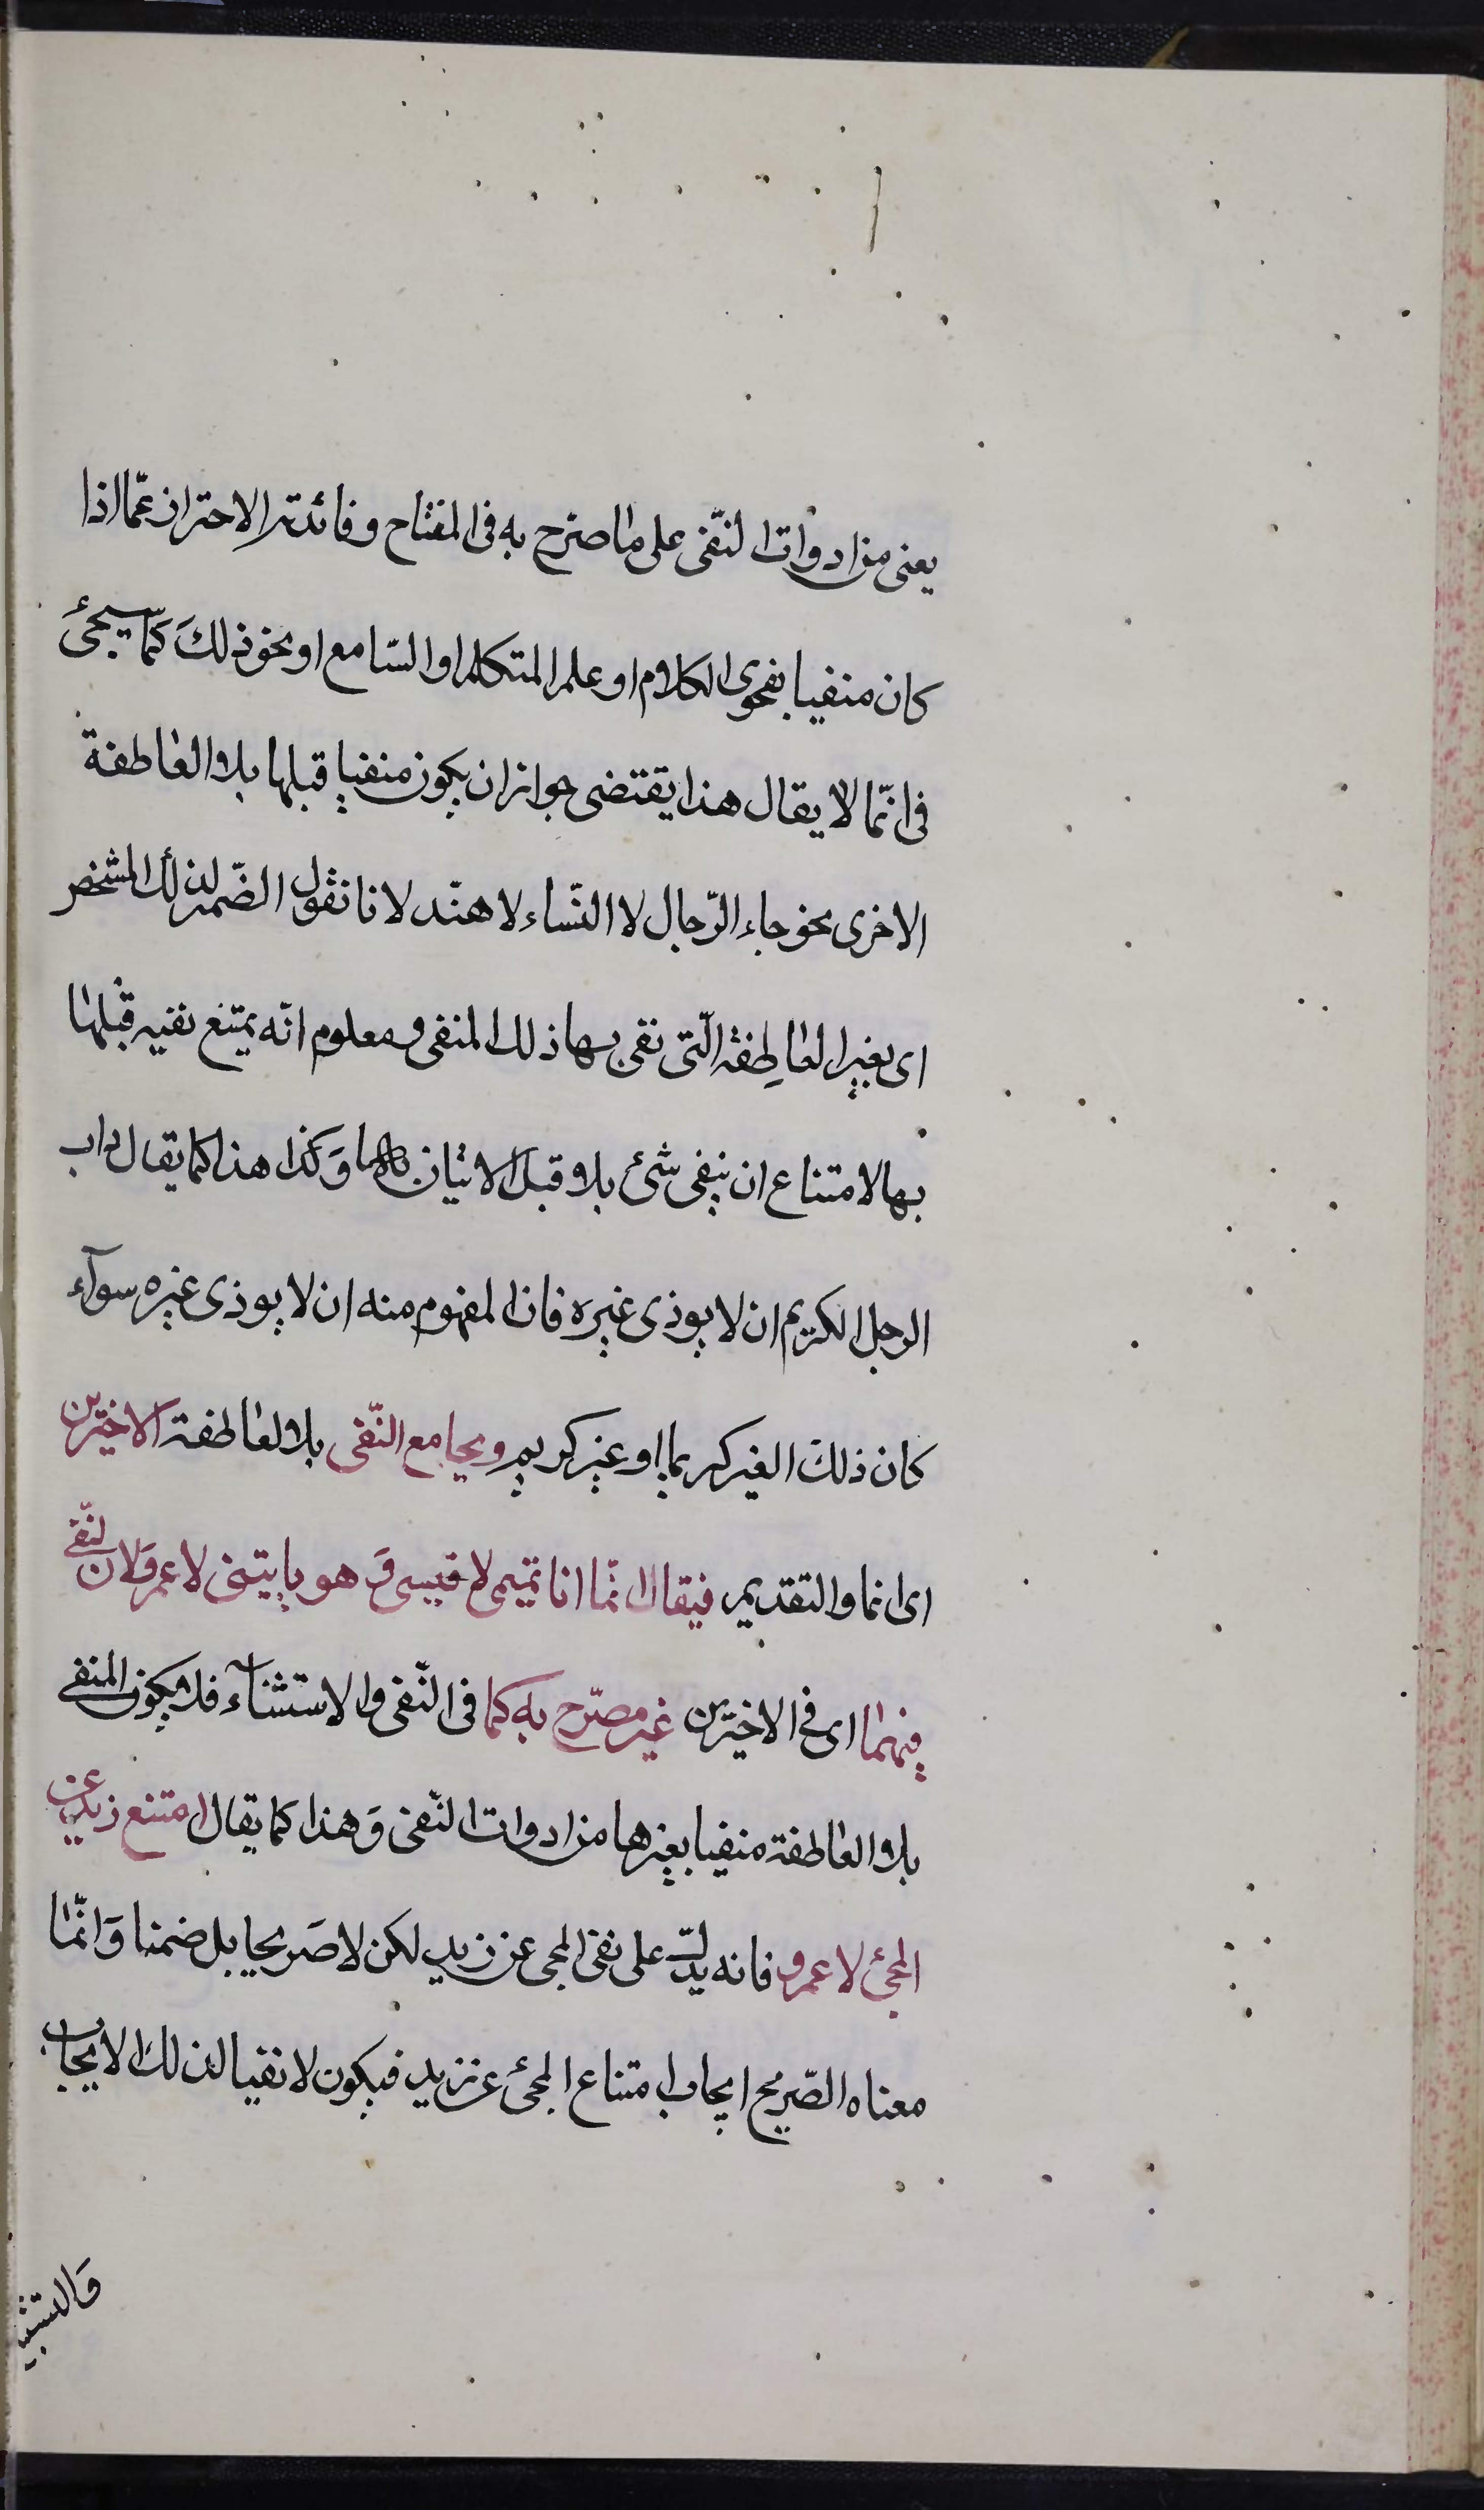 يعنى من ادوات النّفى على ما صرّح به فى المفتاح وفائدته الاحتراز عمّا اذا
كان منفيا بفحوى الكلام او علم المتكلم او السّامع او نحو ذلكَ كما سيجىٔ
فى انّما لا يقال هذا يقتضى جواز ان يكون منفيا قبلها بلا العاطفة
الاخرى نحو جاء الرّجال لا النّساء لا هند لانا نقول الضّمير لذلك المشخص
اى بغير لا العاطِفة الّتى نفى بها ذلك المنفى ومعلوم انّه يمتنع نفيه قبلها
بها لامتناع ان ينفى شئ بلا قبل الاتيان بها وَكذا هذا كما يقال داب
الرجل الكريم ان لا يوذى غيره فان المفهوم منه ان لا يوذى غيره سوآء
كان ذلك الغير كريما او غير كريم ويجامع النّفى بلا العاطفة الاخيرين
اى انما والتقديم فيقال انّما انا تميمى لا قيسى وَ هو ياتينى لا عمرو لان النّفى
فيهما اى فى الاخيرين غير مصرّح به كما فى النّفى والاستثنآء فلا يكون المنفى
بلا العاطفة منفيا بغيرها من ادوات النّفى وَهذا كما يقال امتنع زيد عن
المجئ لا عمرو فانه يدلّ على نفى المجى عن زيد لكن لا صَريحا بل ضمنا وَانّما
معناه الصّريح ايجاب امتناع المجئ عن زيد فيكون لا نفيا لذلك الايجاب
وَالتشبيه